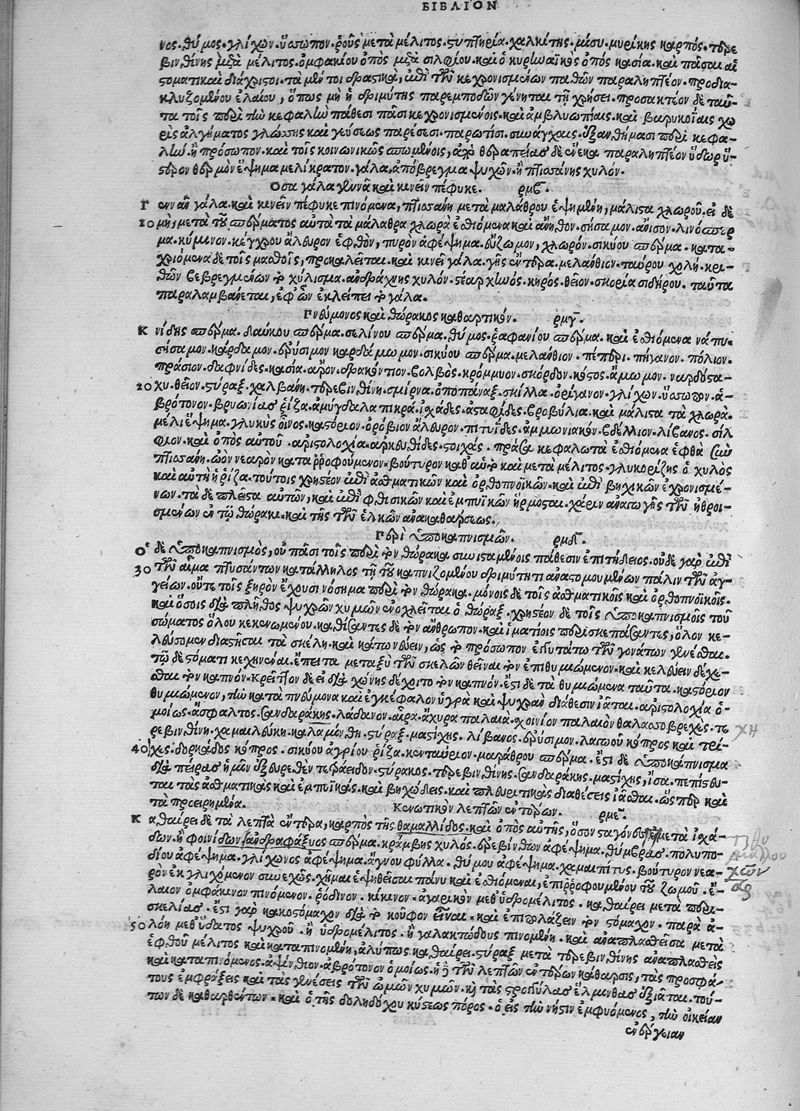 ΒΙΒΛΙΟΝ
νος. θύμος. γλίχων. ὕσσωπον. ῥοῦς μετὰ μέλιτος. στυπτηρία. χαλκίτης. μίσυ. μυρίκης καρπός. τερε-
βινθίνης μετὰ μέλιτος. ὀμφακίου ὀπὸς μετὰ σιλφίου. καὶ ὁ κυρηναϊκὸς ὀπός. κασία. καὶ πᾶσαι αἱ
στοματικαὶ διάχριστοι. τὰ μέντοι δραστικὰ, ἐπὶ τῶν κεχρονισμένων παθῶν παραληπτέον. προδια-
κλυζομένου ἐλαίου, ὅπως μὴ ἡ δριμύτης παρεμποδὼν γένηται τῇ χρήσει. προσακτέον δὲ ταῦ-
τα τοῖς περὶ τὴν κεφαλὴν πάθεσι πᾶσι κεχρονισμένοις. καὶ ἀμβλυωπίαις. καὶ βαρυκοΐαις χω-
ρὶς ἀλγήματος γλώσσης καὶ γεύσεως παρέσεσι. παρωτίσι. συνάγχαις. ἐξανθήμασι περὶ κεφα-
λὴν. ἢ πρόσωπον. καὶ τοῖς κοιωνικῶς σπωμένοις, μετὰ θεραπείας δὲ ἕνεκα παραληπτέον ὕδωρ ὕ-
στερον θερμὸν ἕψημα μελίκρατον. γάλα. ἀπόβρεγμα ψυχῶν. ἢ πτισάνης χυλόν.
Ὅσα γάλα γεννᾶν καὶ κινεῖν πέφυκε. ρμβ.
Γεννᾶν γάλα. καὶ κινεῖν πέφυκε πινόμενα, πτισάνη μετὰ μαλάθρου ἑψημένη, μάλιστα χλωροῦ. εἰ δὲ
10 μὴ, μετὰ τοῦ σπέρματος αὐτὰ τὰ μάλαθρα χλωρὰ ἐσθιόμενα καὶ ἄνηθον. σήσαμον. ἄνισον. λινόσπερ-
μα. κύμινον. κέγχρου ἄλευρον ἑφθὸν, πυρὸν ἀφέψημα. εὔζωμον, χλωρόν. σικύου σπέρμα. κατα-
χριόμενα δὲ τοῖς μασθοῖς, προκαλεῖται. καὶ κινεῖ γάλα. γῆς ἔντερα. μελάνθιον. ταύρου χολή. κρι-
θῶν βεβρεγμένων τὸ χύλισμα. ἀνδράχνης χυλόν. στέαρ χήνος. κηρός. θεῖον. σκορία σιδήρου. ταῦτα
παραλαμβάνεται, ἐφ' ὧν ἐκλείπει τὸ γάλα.
Πνεύμονος καὶ θώρακος καθαρτικόν. ρμγ.
Κνίδης σπέρμα. δαύκου σπέρμα. σελίνου σπέρμα. θύμος. ῥαφανίου σπέρμα. καὶ ἐσθιόμενα νάπυ.
σήσαμον. κάρδαμον. ἐρύσιμον. καρδάμωμον. σικύου σπέρμα. μελάνθιον. πέπερι. πήγανον. πόλιον.
πράσιον. δαφνίδες. κασία. ἄρον. δρακόντιον. βολβός. κρόμμυον. σκόρδον. κόστος. ἄμωμον. ναρδόστα-
20 χυ. θεῖον. στύραξ. χαλβάνη. τερεβινθίνη. σμύρνα. ὀποπάναξ. σκίλλα. ὀρίγανον. γλίχων. ὕσσωπον. ἀ-
βρότονον. βρυωνίας ῥίζα. ἀμύγδαλα πικρά. ἰσχάδες. ἀσταφίδες. στροβύλια. καὶ μάλιστα τὰ χλωρὰ.
μέλι ἕψημα. γλυκὺς οἶνος. καστόριον. ὀρόβιον ἄλευρον. πιτυΐδες. ἀμμωνιακόν. βδέλλιον. λίβανος. σίλ-
φιον. καὶ ὀπὸς αὐτοῦ. ἀριστολοχία. ἀρκευθίδες. στοιχάς. πράσα κεφαλωτὰ ἐσθιόμενα ἑφθὰ σὺν
πτισάνῃ. ὠὸν νεαρὸν καταρροφούμενον. βούτυρον καθ' αὑτὸ καὶ μετὰ μέλιτος. γλυκυρίζης ὁ χυλὸς
καὶ αὐτὴ ἡ ῥίζα. τούτοις χρηστέον ἐπὶ ἀσθματικῶν καὶ ὀρθοπνοϊκῶν. καὶ ἐπὶ βηχικῶν κεχρονισμέ-
νων. τὰ δὲ πλεῖστα αὐτῶν, καὶ ἐπὶ φθισικῶν καὶ ἐμπυϊκῶν ἥρμοσται. χάριν ἀναγωγῆς τῶν ἠθροι-
σμένων ἐν τῷ θώρακι. καὶ τῆς τῶν ἑλκῶν ἀνακαθάρσεως.
Περὶ ὑποκαπνισμῶν. ρμδ.
Ὁ δὲ ὑποκαπνισμὸς, οὐ πᾶσι τοῖς περὶ τὸν θώρακα συνισταμένοις πάθεσιν ἐπιτήδειος. οὐδὲ γὰρ ἐπὶ
30 τῶν αἷμα πτυσάντων κατάλληλος τῇ τοῦ καπνιζομένου δριμύτητι ἀναστομουμένων πάλιν τῶν ἀγ-
γείων. οὔτε τοῖς ξηρὸν ἔχουσι νόσημα περὶ τὸν θώρακα. μόνοις δὲ τοῖς ἀσθματικοῖς καὶ ὀρθοπνοϊκοῖς.
καὶ ὅσοις διὰ πλῆθος ψυχρῶν χυμῶν ἐνοχλεῖται ὁ θώραξ. χρηστέον δὲ τοῖς ὑποκαπνισμοῖς τοῦ
σώματος ὅλου κεκενωμένου. καθίσαντες δὲ τὸν ἄνθρωπον. καὶ ἱματίοις περισκεπάσαντες, ὅλον κε-
λεύσομεν διαστῆσαι τὰ σκέλη. καὶ κατανεύειν, ὡς τὸ πρόσωπον ἐγγυτάτω τῶν γονάτων γενέσθαι.
τῷ δὲ στόματι κεχηνέναι. ἔπειτα μεταξὺ τῶν σκελῶν θεῖναι τὸν ἐπιθυμιώμενον. καὶ κελεύειν δέχε-
σθαι τὸν καπνόν. κρεῖττον δὲ εἰ διὰ χώνης δέχοιτο τὸν καπνόν. ἔστι δὲ τὰ θυμιώμενα ταῦτα. καστόριον
θυμιώμενον, τὴν κατὰ πνεύμονα καὶ ἐγκέφαλον ὑγρὰν καὶ ψυχρὰν διάθεσιν ἰᾶται. ἀριστολοχία ὁ-
μοίως. ἄσφαλτος. σανδαράκης. λάδανον. αἶρα. ἄχυρα παλαιά. σχοινίον παλαιὸν θαλασσοβρεχές. τε-
ρεβινθίνη. χαμαιλεύκη. καλαμίνθη. στύραξ. μαστίχης. λίβανος. ἐρύσιμον. λαγωοῦ κόπρος καὶ τρί- χη
40 χες. δορκάδος κόπρος. σικύου ἀγρίου ῥίζα. κενταύριον. μαράθρου σπέρμα. ἔστι δὲ ὑποκάπνισμα
διὰ πείρας ἡμῶν ἐξευρεθὲν τοιόνδε. στύρακος. τερεβινθίνης. σανδαράκης. μαστίχης, ἴσα. πεπίστευ-
ται τὰς ἀσθματικὰς καὶ ἐμπυϊκὰς. καὶ βηχώδεις. καὶ πλευριτικὰς διαθέσεις ἰᾶσθαι. ὥσπερ καὶ
τὰ προειρημένα. Κενωτικὸν λεπτῶν ἐντέρων. ρμε.
Καθαίρει δὲ τὰ λεπτὰ ἔντερα, καρπὸς τῆς θαμαλλίδος. καὶ ὀπὸς αὐτῆς, ὅσον σταγόνας μετὰ ἰσχά-
δων. ἢ φοινίδων. ἀνδραφάξυος σπέρμα. κράμβης χυλός. ἐρεβίνθων ἀφέψημα. θυμβρας. πολυπο-
δίου ἀφέψημα. γλίχωνος ἀφέψημα. ἄγνου φύλλα. θύμου ἀφέψημα. χαμαιπίτυς. βούτυρον νεα-
ρὸν ἐκλιχόμενον συνεχῶς. χῆμαι ἑψηθεῖσαι πάνυ καὶ ἐσθιόμεναι, ἐπιρροφουμένου τοῦ ζωμοῦ. ἔ-
λαιον ὀμφάκινον πινόμενον. ῥόδινον. κίκινον. ἀγαρικὸν μεθ' ὑδρομέλιτος. καθαίρει μετὰ περι-
σκελίας. ἔστι γὰρ κακοστόμαχον διὰ τὸ κοῦφον εἶναι. καὶ ἐπιπλάζειν τὸν στόμαχον. παρὰ ἀ-
50 λόη μεθ' ὕδατος ψυχροῦ. ἢ ὑδρομέλιτος. ἢ γαλακτώδους πινομένη. καὶ ἀναπλασθεῖσα μετὰ
ἑφθοῦ μέλιτος καὶ καταπινομένη, ἀλύπως καθαίρει. στύραξ μετὰ τερεβινθίνης ἀναπλασθεὶς
καὶ καταπινόμενος. ἀψίνθιον. ἀβρότονον ὁμοίως. ἡ δὲ τῶν λεπτῶν ἐντέρων κάθαρσις, τὰς προσφά-
τους ἐμφράξεις καὶ τὰς γενέσεις τῶν ὠμῶν χυμῶν. καὶ τὰς στρογγύλας ἕλμινθας ἐξιᾶται. τού-
των δὲ καθαρθέντων. καὶ ὁ τῆς δοχηδόχου κύστεως πόρος. ὁ εἰς τὴν νῆστιν ἐμφυόμενος, τὴν οἰκείαν
ἐνέργειαν